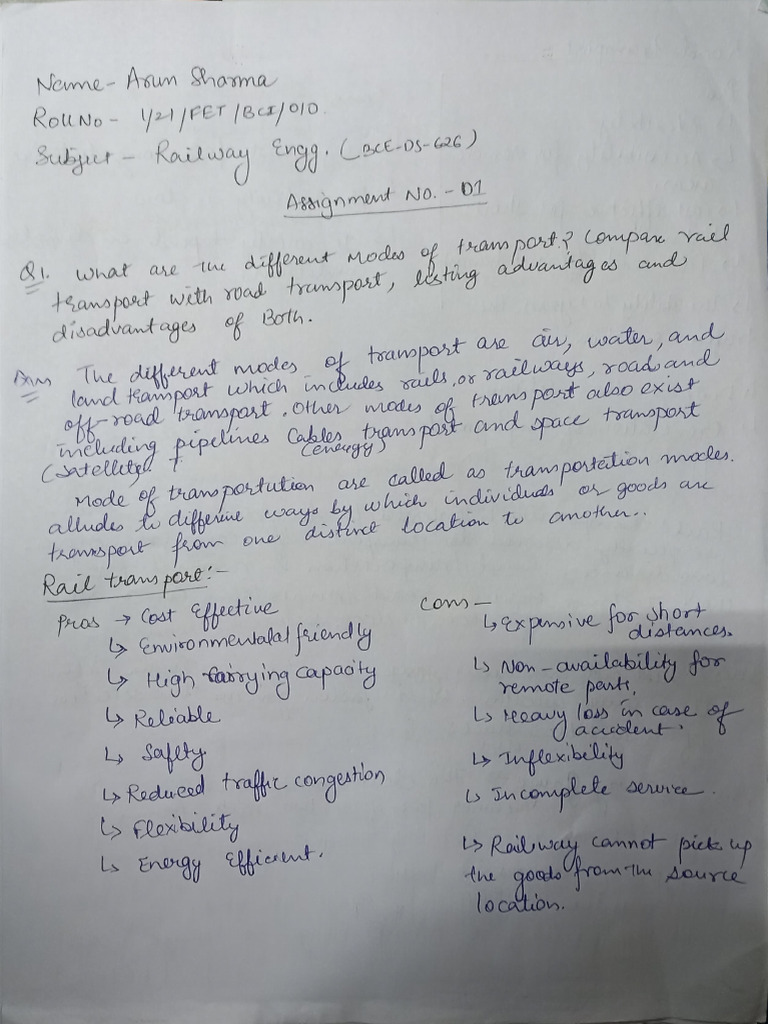 Name- Arun Sharma
Roll No - 1/21/FET/BCI/010
Subject - Railway Engg. (BCE-DS-626)
Assignment No. - 01
Q1. What are the different Modes of transport? Compare rail
transport with road transport, listing advantages and
disadvantages of Both.
Ans The different modes of transport are air, water, and
land transport which includes rails, or railways, road and
off-road transport. Other modes of transport also exist
including pipelines Cables transport and space transport
(energy)
(satellite)
Mode of transportution are called as transportation modes.
alludes to differene ways by which individuals or goods are
transport from one distinct location to another..
Rail transport:-
Pros → Cost Effective
↳ Environmentalal friendly
↳ High carrying capacity
↳ Reliable
↳ Safety
↳ Reduced traffic congestion
↳ Flexibility
↳ Energy Efficient.
Cons -
↳ Expensive for short
distances.
↳ Non-availability for
remote parts.
↳ Heavy loss in case of
accident.
↳ Inflexibility
↳ Incomplete service.
↳ Railway cannot pick up
the goods from the source
location.